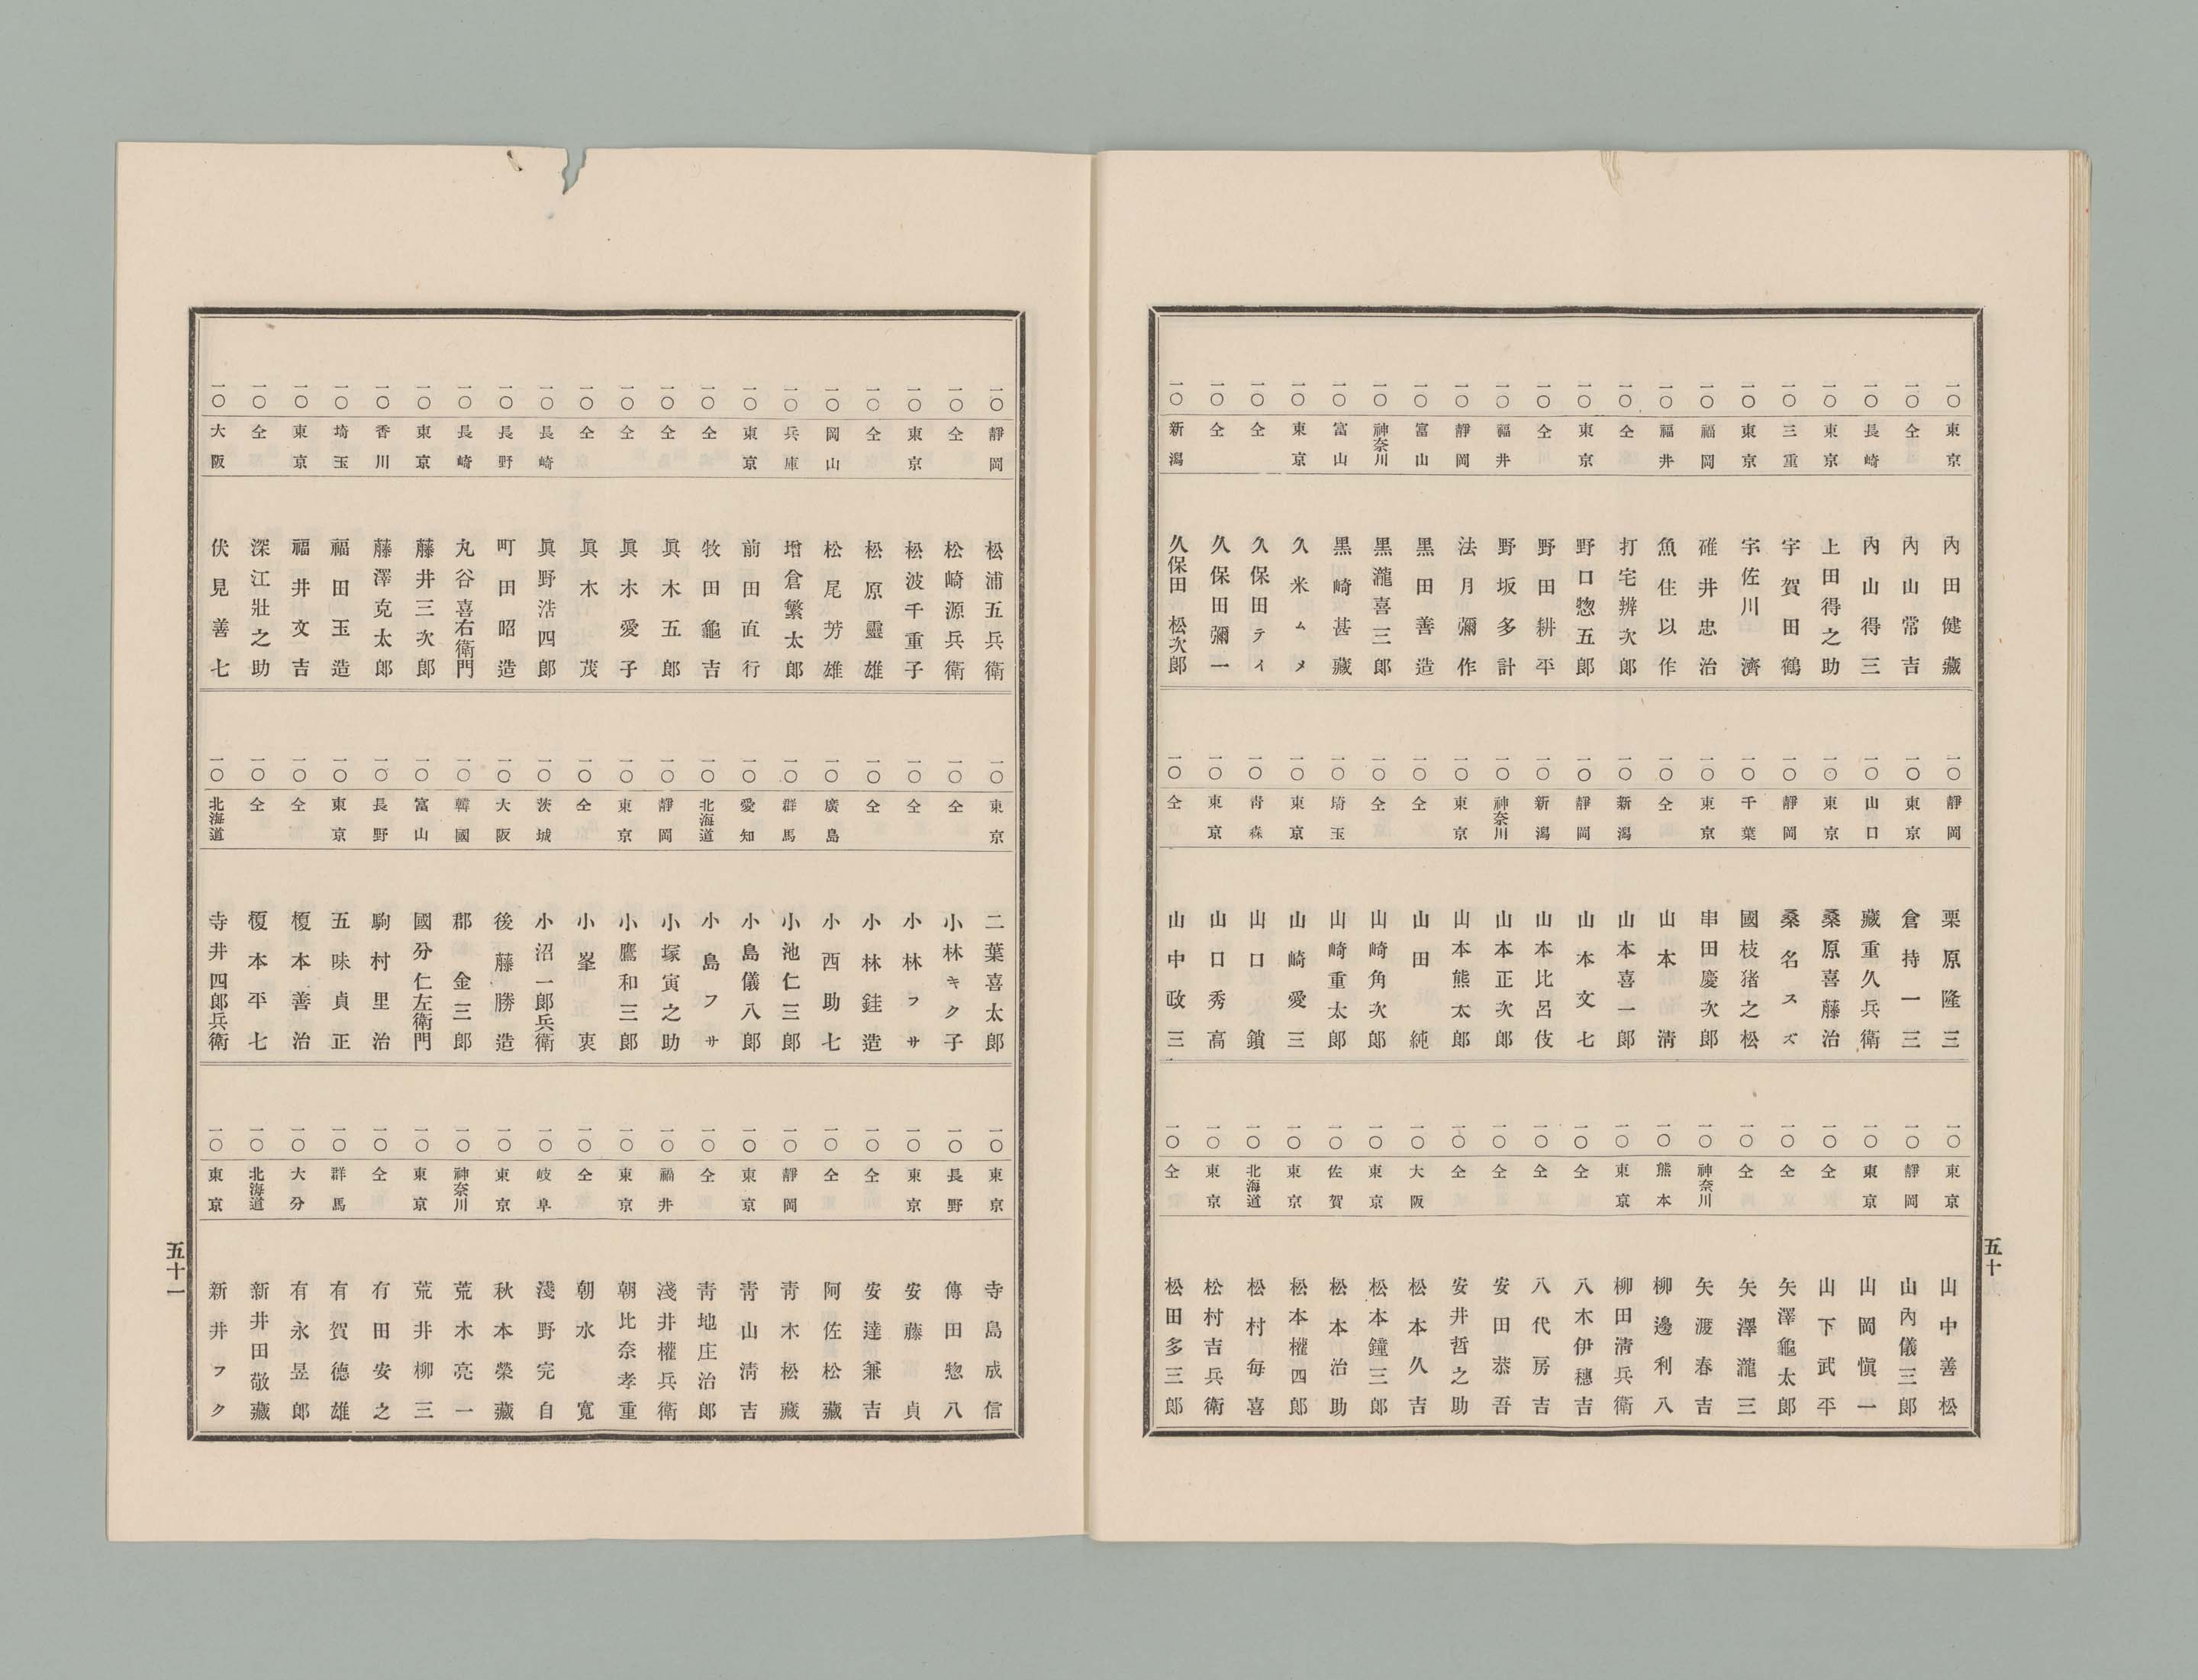 一〇 東京 內田健藏
一〇 仝 內山常吉
一〇 長崎 內山得三
一〇 東京 上田得之助
一〇 三重 宇賀田鶴
一〇 東京 宇佐川濟
一〇 福岡 碓井忠治
一〇 福井 魚住以作
一〇 仝 打宅辨次郎
一〇 東京 野口惣五郎
一〇 仝 野田耕平
一〇 福井 野坂多計
一〇 靜岡 法月彌作
一〇 富山 黑田善造
一〇 神奈川 黑瀧喜三郎
一〇 富山 黑崎甚藏
一〇 東京 久米ムメ
一〇 仝 久保田テイ
一〇 仝 久保田彌一
一〇 新潟 久保田松次郎
一〇 靜岡 栗原隆三
一〇 東京 倉持一三
一〇 山口 藏重久兵衛
一〇 東京 桑原喜藤治
一〇 靜岡 桑名スズ
一〇 千葉 國枝猪之松
一〇 東京 串田慶次郎
一〇 仝 山本淸
一〇 新潟 山本喜一郎
一〇 靜岡 山本文七
一〇 新潟 山本比呂伎
一〇 神奈川 山本正次郎
一〇 東京 山本熊太郎
一〇 仝 山田純
一〇 仝 山崎角次郎
一〇 埼玉 山崎重太郎
一〇 東京 山崎愛三
一〇 靑森 山口鎖
一〇 東京 山口秀高
一〇 仝 山中政三
一〇 東京 山中善松
一〇 靜岡 山內儀三郎
一〇 東京 山岡愼一
一〇 仝 山下武平
一〇 仝 矢澤龜太郎
一〇 仝 矢澤瀧三
一〇 神奈川 矢渡春吉
一〇 熊本 柳邊利八
一〇 東京 柳田淸兵衛
一〇 仝 八木伊穗吉
一〇 仝 八代房吉
一〇 仝 安田恭吾
一〇 仝 安井哲之助
一〇 大阪 松本久吉
一〇 東京 松本鐘三郎
一〇 佐賀 松本治助
一〇 東京 松本權四郎
一〇 北海道 松村每喜
一〇 東京 松村吉兵衛
一〇 仝 松田多三郎
五十
一〇 靜岡 松浦五兵衛
一〇 仝 松崎源兵衛
一〇 東京 松波千重子
一〇 仝 松原靈雄
一〇 岡山 松尾芳雄
一〇 兵庫 增倉繁太郎
一〇 東京 前田直行
一〇 仝 牧田龜吉
一〇 仝 眞木五郎
一〇 仝 眞木愛子
一〇 仝 眞木茂
一〇 長崎 眞野浩四郎
一〇 長野 町田昭造
一〇 長崎 丸谷喜右衛門
一〇 東京 藤井三次郎
一〇 香川 藤澤克太郎
一〇 埼玉 福田玉造
一〇 東京 福井文吉
一〇 仝 深江壯之助
一〇 大阪 伏見善七
一〇 東京 二葉喜太郎
一〇 仝 小林キク子
一〇 仝 小林フサ
一〇 仝 小林銈造
一〇 廣島 小西助七
一〇 群馬 小池仁三郎
一〇 愛知 小島儀八郎
一〇 北海道 小島フサ
一〇 靜岡 小塚寅之助
一〇 東京 小鷹和三郎
一〇 仝 小峯衷
一〇 茨城 小沼一郎兵衛
一〇 大阪 後藤勝造
一〇 韓國 郡金三郎
一〇 富山 國分仁左衛門
一〇 長野 駒村里治
一〇 東京 五味貞正
一〇 仝 榎本善治
一〇 仝 榎本平七
一〇 北海道 寺井四郎兵衛
一〇 東京 寺島成信
一〇 長野 傳田惣八
一〇 東京 安藤貞
一〇 仝 安達兼吉
一〇 仝 阿佐松藏
一〇 靜岡 靑木松藏
一〇 東京 靑山淸吉
一〇 仝 靑地庄治郎
一〇 福井 淺井權兵衛
一〇 東京 朝比奈孝重
一〇 仝 朝水寬
一〇 岐阜 淺野完自
一〇 東京 秋本榮藏
一〇 神奈川 荒木亮一
一〇 東京 荒井柳三
一〇 仝 有田安之
一〇 群馬 有賀德雄
一〇 大分 有永昱郎
一〇 北海道 新井田敬藏
一〇 東京 新井フク
五十一